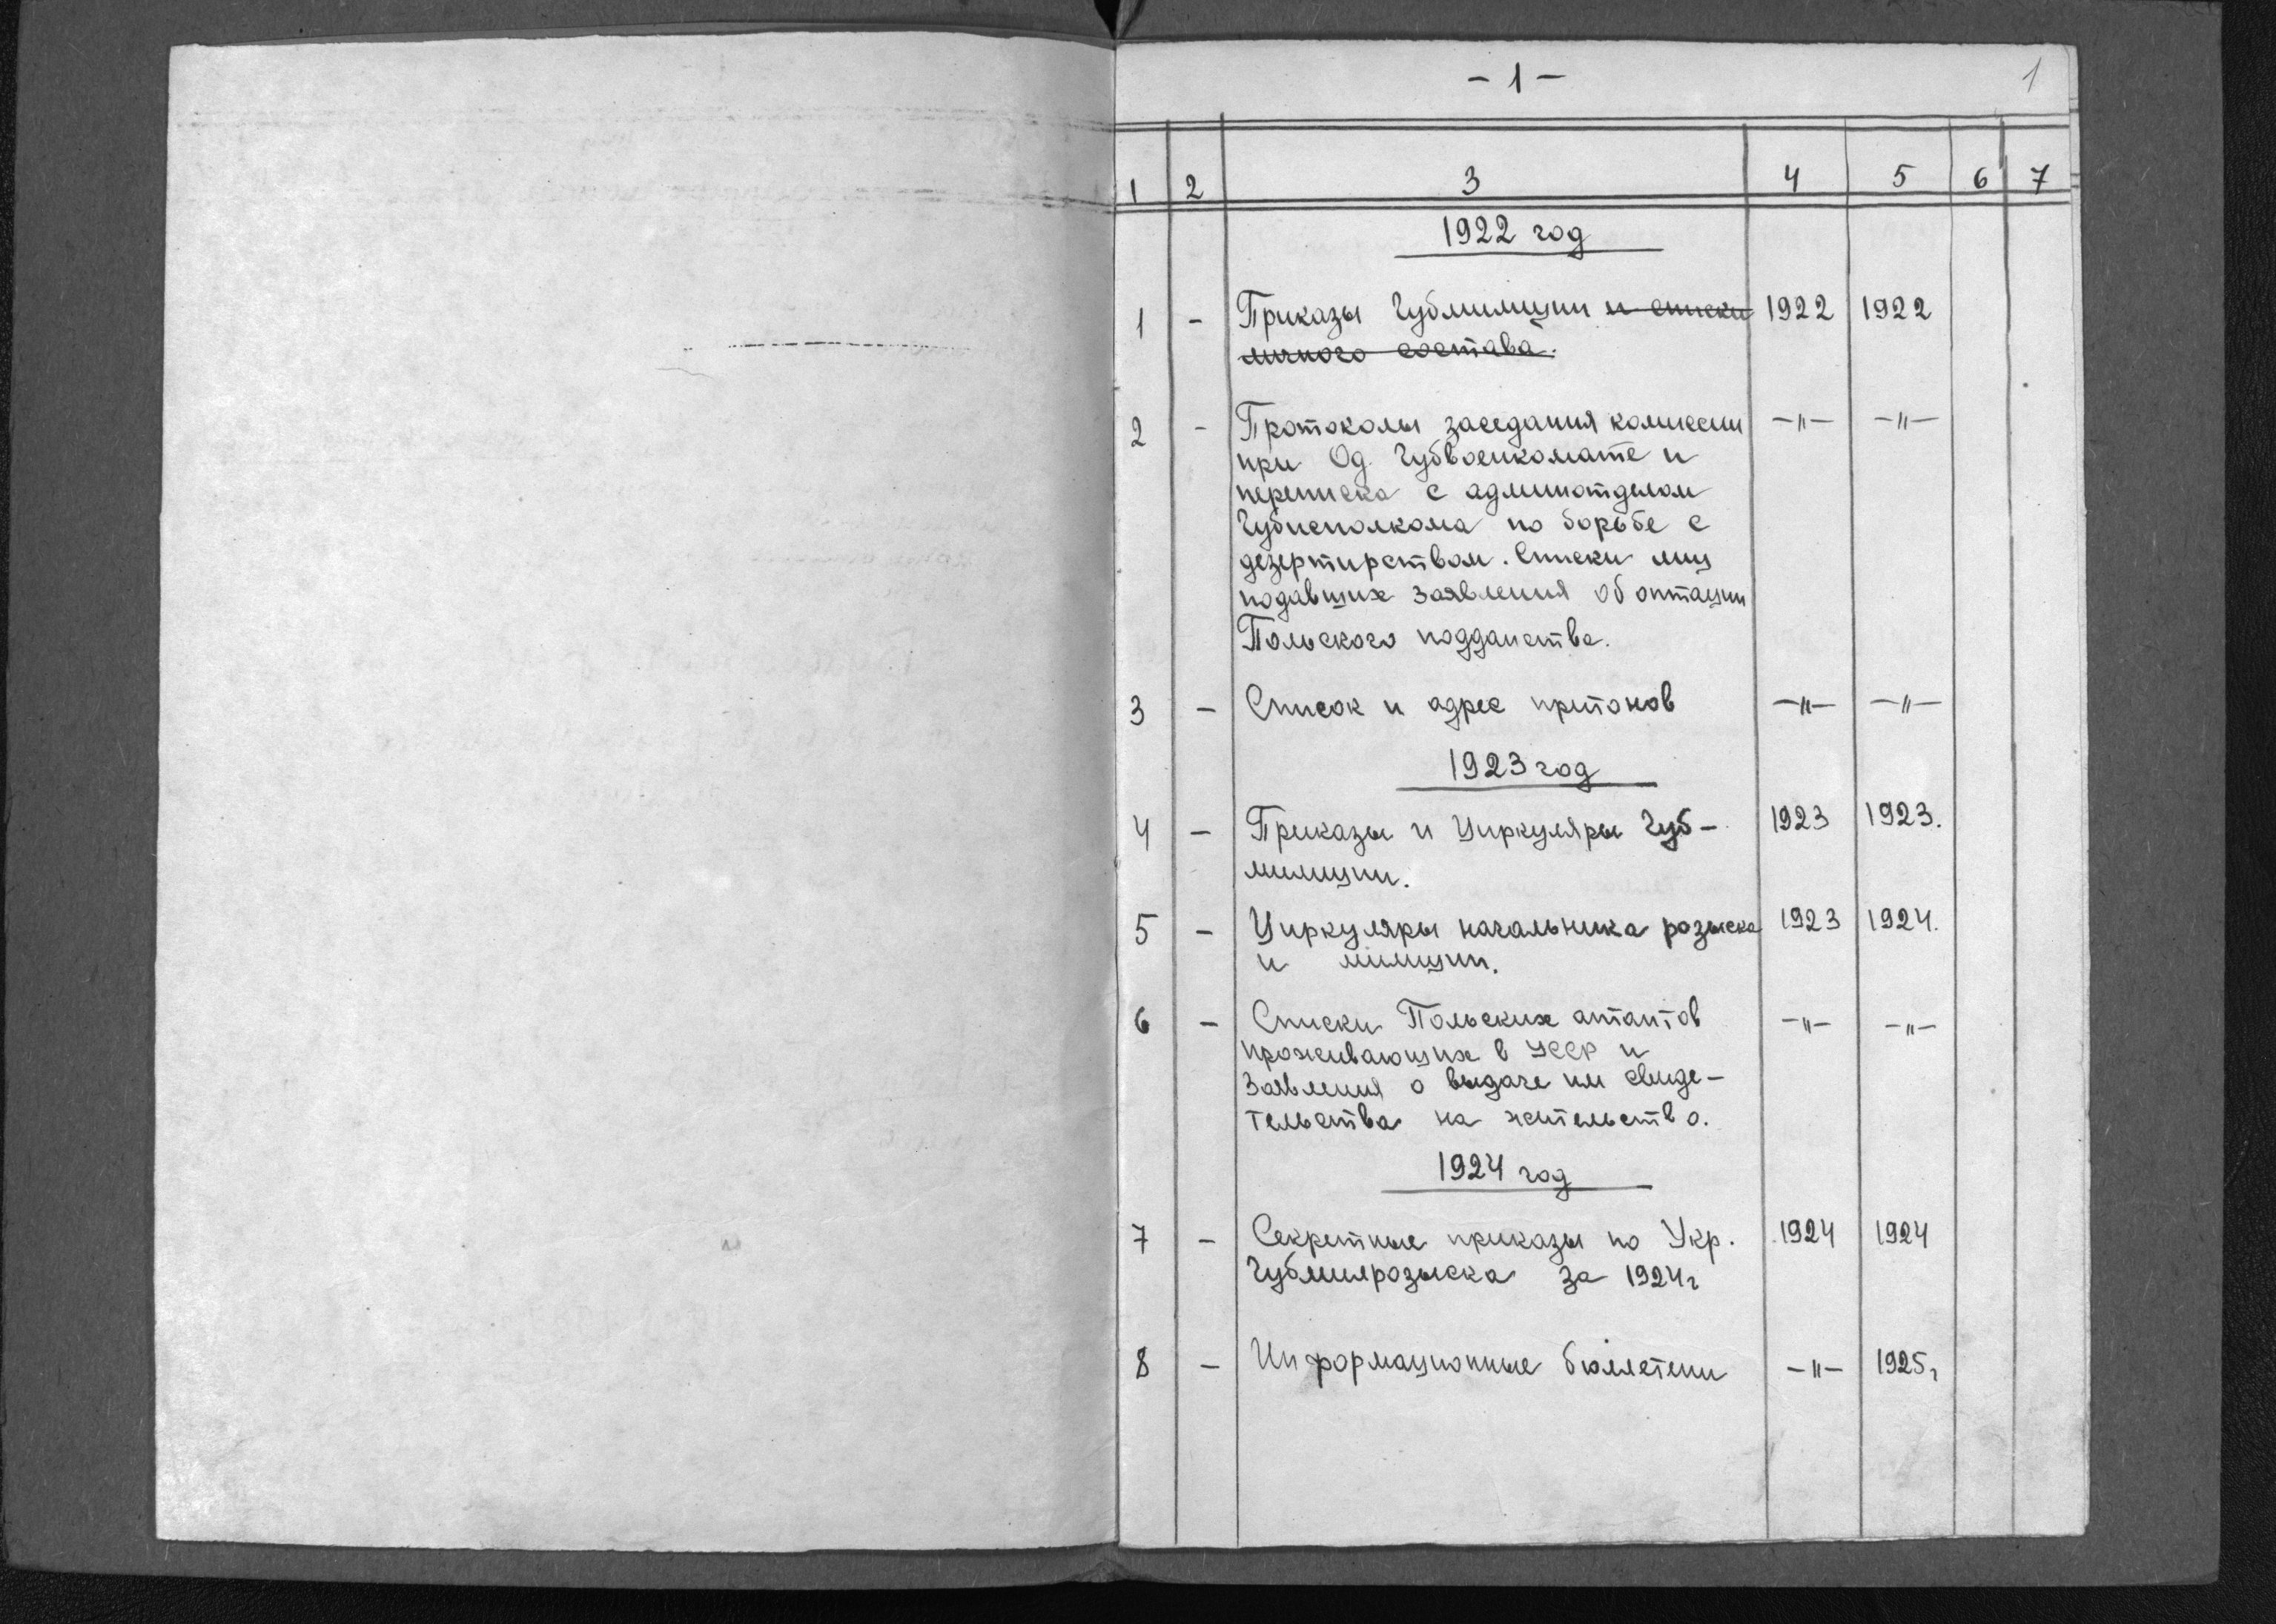 - 1 -
1
1 2 3 4 5 6 7
1922 год
1 - Приказы Губмилиции и списки 1922 1922
личного состава.
2 - Протоколы заседания комиссии -"- -"-
при Од. Губвоенкомате и
переписка с админотделом
Губисполкома по борьбе с
дезертирством. Списки лиц
подавших заявления об оптации
Польского подданства.
3 - Список и адрес притонов -"- -"-
1923 год
4 - Приказы и Циркуляры Губ- 1923 1923.
милиции.
5 - Циркуляры начальника розыска 1923 1924.
и милиции.
6 - Списки Польских аптантов -"- -"-
проживающих в УССР и
заявления о выдаче им свиде-
тельства на жительство.
1924 год
7 - Секретные приказы по Укр. 1924 1924
Губмилрозыска за 1924г
8 - Информационные бюллетени -"- 1925г